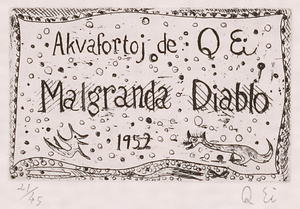 Akvafortoj de Q Ei
Malgranda Diablo
1952
21/45 Q Ei